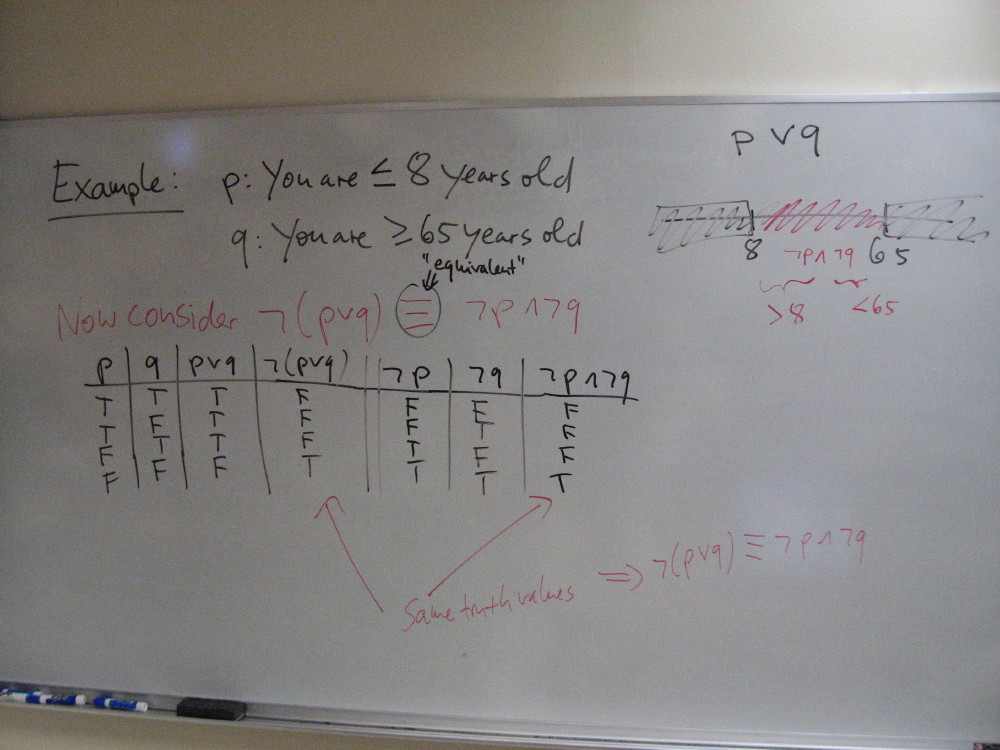 Example: p: You are ≤ 8 years old
q: You are ≥ 65 years old
"equivalent"
Now consider ¬(p∨q) ≡ ¬p∧¬q
p q p∨q ¬(p∨q) ¬p ¬q ¬p∧¬q
T T T F F F F
T F T F F T F
F T T F T F F
F F F T T T T
Same truth values ⇒ ¬(p∨q) ≡ ¬p∧¬q
p∨q
8 ¬p∧¬q 65
>8 <65